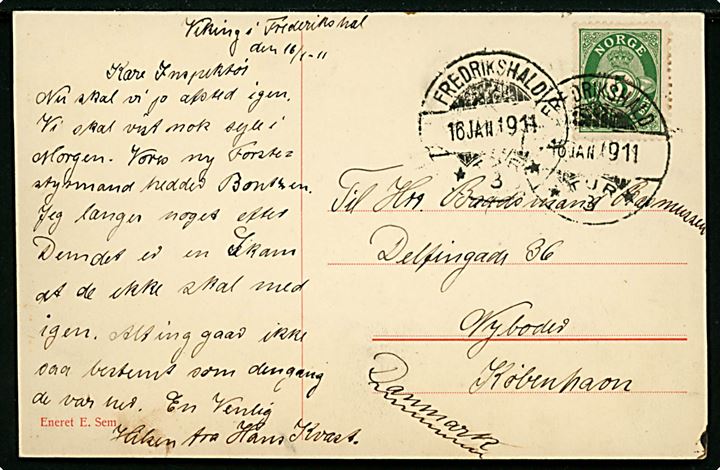 Viking i Frederikshal
den 16/1-11
Kære Inspektør
Nu skal vi jo afsted igen.
Vi skal vist nok sejle i
Morgen. Vores ny Første-
styrmand hedder Bontzen.
Jeg længes noget efter
Dem det er en Skam
at de ikke skal med
igen. Alting gaar ikke
saa bestemt som dengang
de var her. En Venlig
Hilsen fra Hans Kvast.
Eneret E. Sem
NORGE
FREDRIKSHALD
16 JAN 1911
3
DRIKSHALD
16 JAN 1911
3
Til Hrr. Baadsmand Rasmussen
Delfingade 36
Nyboder
København
Danmark